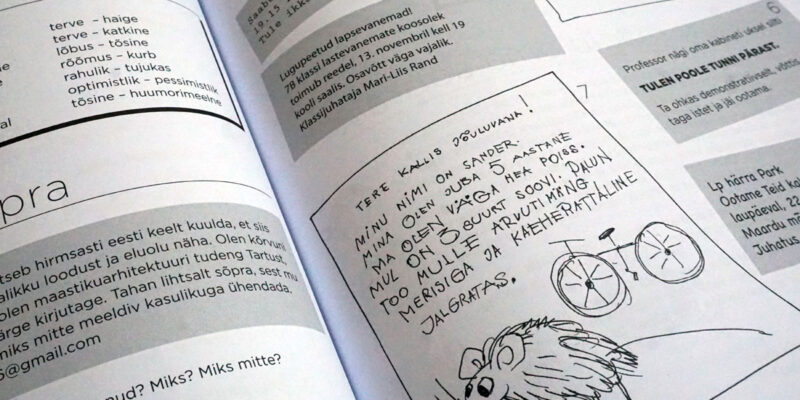 terve – haige
terve – katkine
lõbus – tõsine
rõõmus – kurb
rahulik – tujukas
optimistlik – pessimistlik
tõsine – huumorimeelne
pra
tseb hirmsasti eesti keelt kuulda, et siis
alikku loodust ja eluolu näha. Olen kõrvuni
olen maastikuarhitektuuri tudeng Tartust,
ärge kirjutage. Tahan lihtsalt sõpra, sest mu
miks mitte meeldiv kasulikuga ühendada.
@gmail.com
nud? Miks? Miks mitte?
19.15
Tule
Lugupeetud lapsevanemad!
7B klassi lastevanemate koosolek
toimub reedel, 13. novembril kell 19
kooli saalis. Osavõtt väga vajalik.
Klassijuhataja Mari-Liis Rand
7
TERE KALLIS JÕULUVANA!
MINU NIMI ON SANDER.
MINA OLEN JUBA 5 AASTANE
MA OLEN VÄGA HEA POISS.
MUL ON 3 SUURT SOOVI. PALUN
TOO MULLE ARVUTIMÄNG
MERISIGA JA KAEHERATTALINE
JALGRATAS.
6
Professor nägi oma kabineti uksel silti
TULEN POOLE TUNNI PÄRAST.
Ta ohkas demonstratiivselt, võttis
taga istet ja jäi ootama.
Lp härra Park
Ootame Teid
laupäeval, 22
Maardu
Juhatus